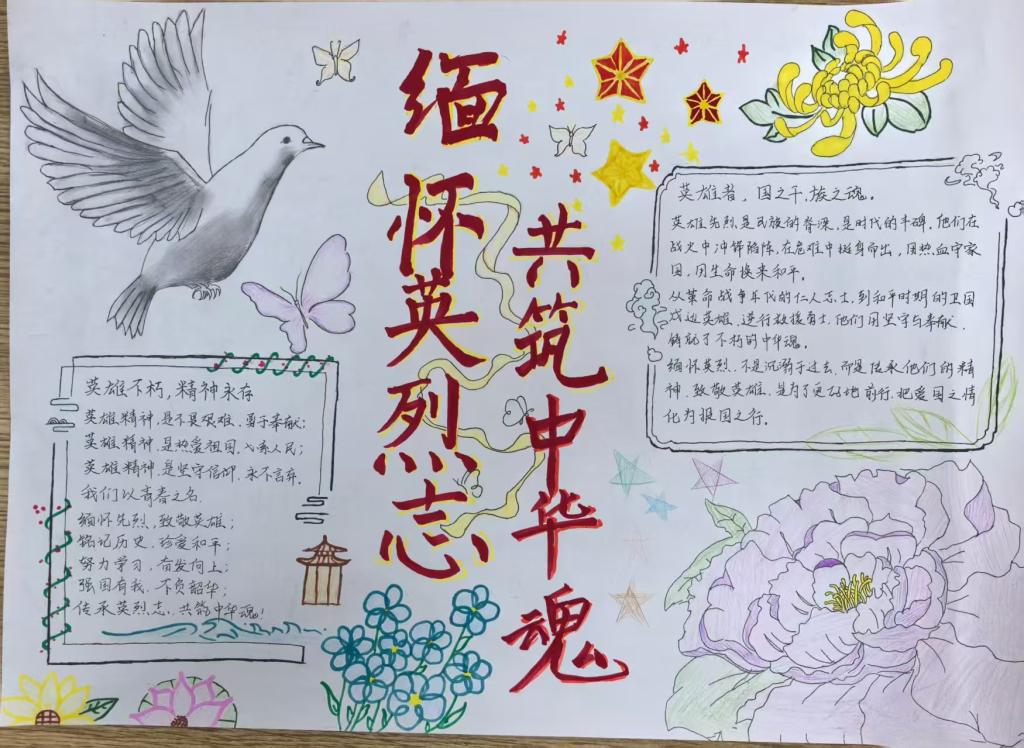 缅怀英烈志
共筑中华魂
英雄不朽,精神永存
英雄精神,是不畏艰难、勇于奉献;
英雄精神,是热爱祖国、心系人民;
英雄精神是坚守信仰、永不言弃。
我们以青春之名
缅怀先烈,致敬英雄;
铭记历史,珍爱和平;
努力学习,奋发向上;
强国有我,不负韶华;
传承英烈志,共筑中华魂!
英雄者,国之干,族之魂。
英雄先烈,是民族的脊梁,是时代的丰碑,他们在
战火中冲锋陷阵,在危难中挺身而出,用热血守家
国,用生命换来和平。
从革命战争年代的仁人志士,到和平时期的卫国
戍边英雄、逆行救援勇士,他们用坚守与奉献,
铸就了不朽的中华魂。
缅怀英烈,不是沉溺于过去,而是传承他们的精
神,致敬英雄,是为了更好地前行,把爱国之情
化为报国之行。